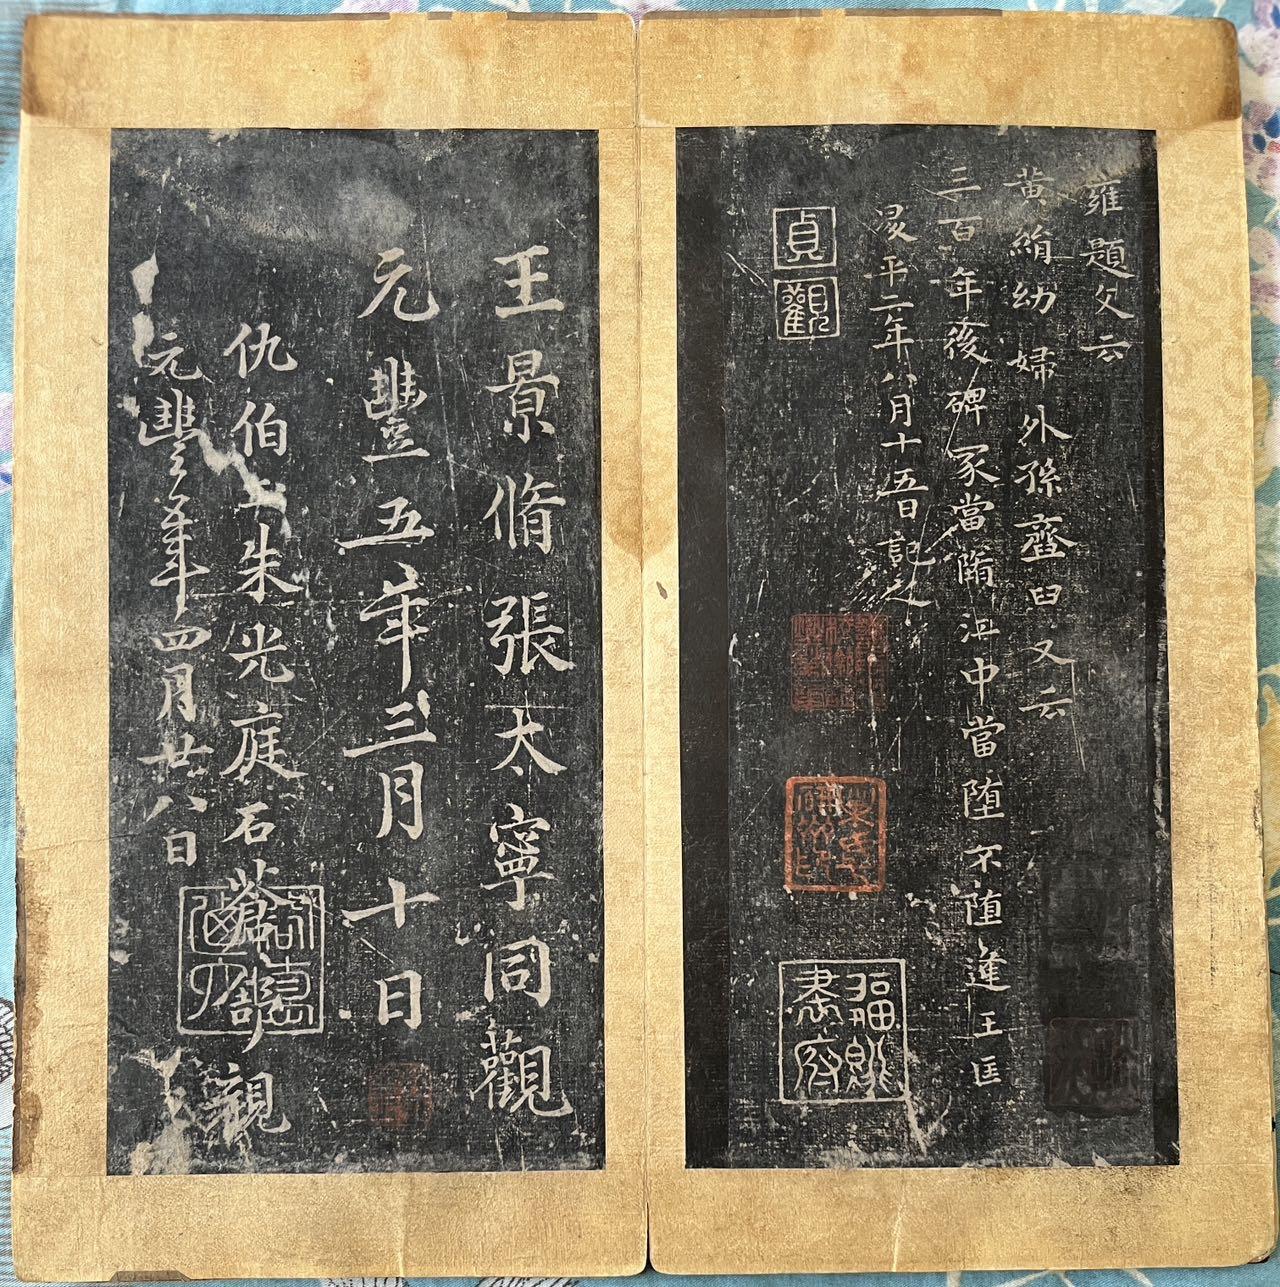 雍題文云
黃絹幼婦外孫齏臼又云
三百年後碑冢當墮江中當墮不墮逢王匡
昇平二年八月十五日記之
貞觀
王景脩張太寧同觀
元豐五年三月十日
仇伯玉朱光庭石蒼舒觀
元豐元年四月廿八日